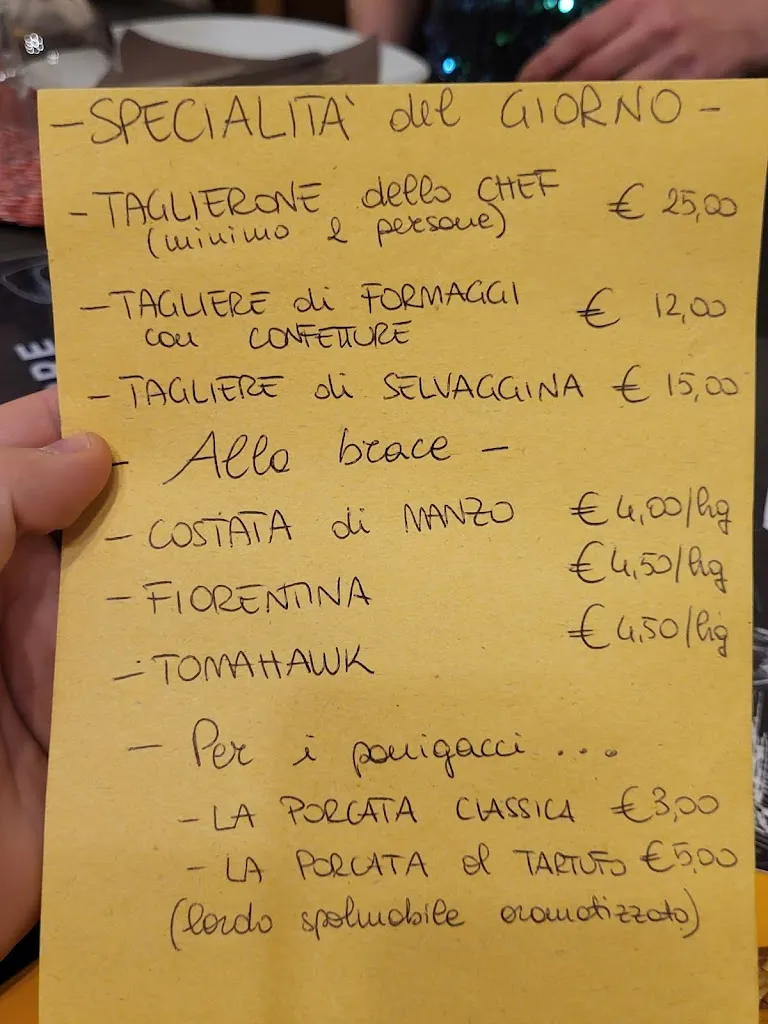 - SPECIALITA' del GIORNO -
- TAGLIERONE dello CHEF € 25,00
(minimo 2 persone)
- TAGLIERE di FORMAGGI € 12,00
con CONFETTURE
- TAGLIERE di SELVAGGINA € 15,00
- Alla brace -
- COSTATA di MANZO € 4,00/hg
- FIORENTINA € 4,50/hg
- TOMAHAWK € 4,50/hg
- Per i panigacci ...
- LA PORCATA CLASSICA € 3,00
- LA PORCATA al TARTUFO € 5,00
(lardo spalmabile aromatizzato)
RE